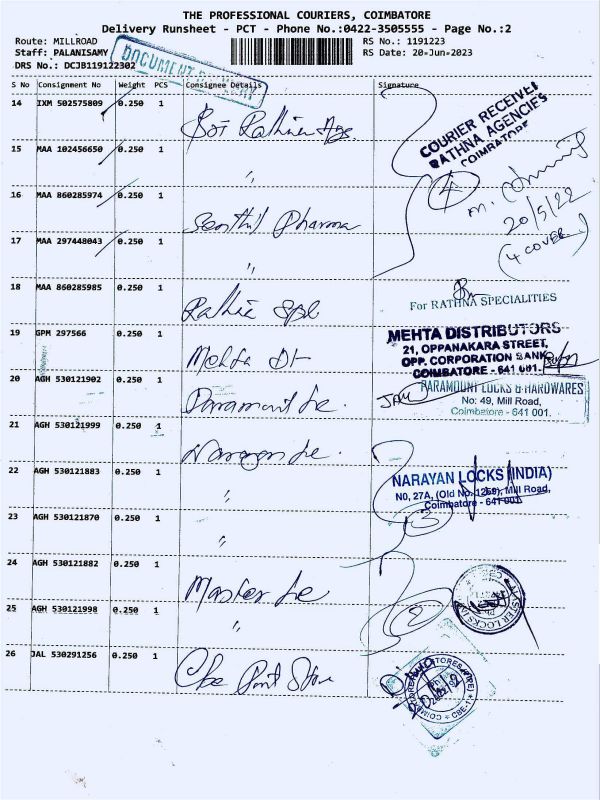 THE PROFESSIONAL COURIERS, COIMBATORE
Delivery Runsheet - PCT - Phone No.:0422-3505555 - Page No.:2
Route: MILLROAD
RS No.: 1191223
Staff: PALANISAMY
RS Date: 20-Jun-2023
DRS No.: DCJB119122302
DOCUMENT
S No Consignment No Weight PCS Consignee Details Signature
14 IXM 502575809 0.250 1
COURIER RECEIVED
RATHNA AGENCIES
COIMBATORE
15 MAA 102456650 0.250 1 "
4
20/5/22
(4 COVER)
16 MAA 860285974 0.250 1 Senthil Pharma
17 MAA 297448043 0.250 1 "
18 MAA 860285985 0.250 1 Rathna Spl
For RATHNA SPECIALITIES
19 GPM 297566 0.250 1 Mehta Dt
MEHTA DISTRIBUTORS
21, OPPANAKARA STREET,
OPP. CORPORATION BANK
COIMBATORE - 641 001.
20 AGH 530121902 0.250 1 Paramount Lc.
PARAMOUNT LOCKS & HARDWARES
No: 49, Mill Road,
Coimbatore - 641 001.
21 AGH 530121999 0.250 1 Narayan Lc.
22 AGH 530121883 0.250 1 "
NARAYAN LOCKS (INDIA)
NO, 27A, (Old No. 1269), Mill Road,
Coimbatore - 641 001
23 AGH 530121870 0.250 1 "
3
24 AGH 530121882 0.250 1 Master Lc
25 AGH 530121998 0.250 1 "
2
26 JAL 530291256 0.250 1